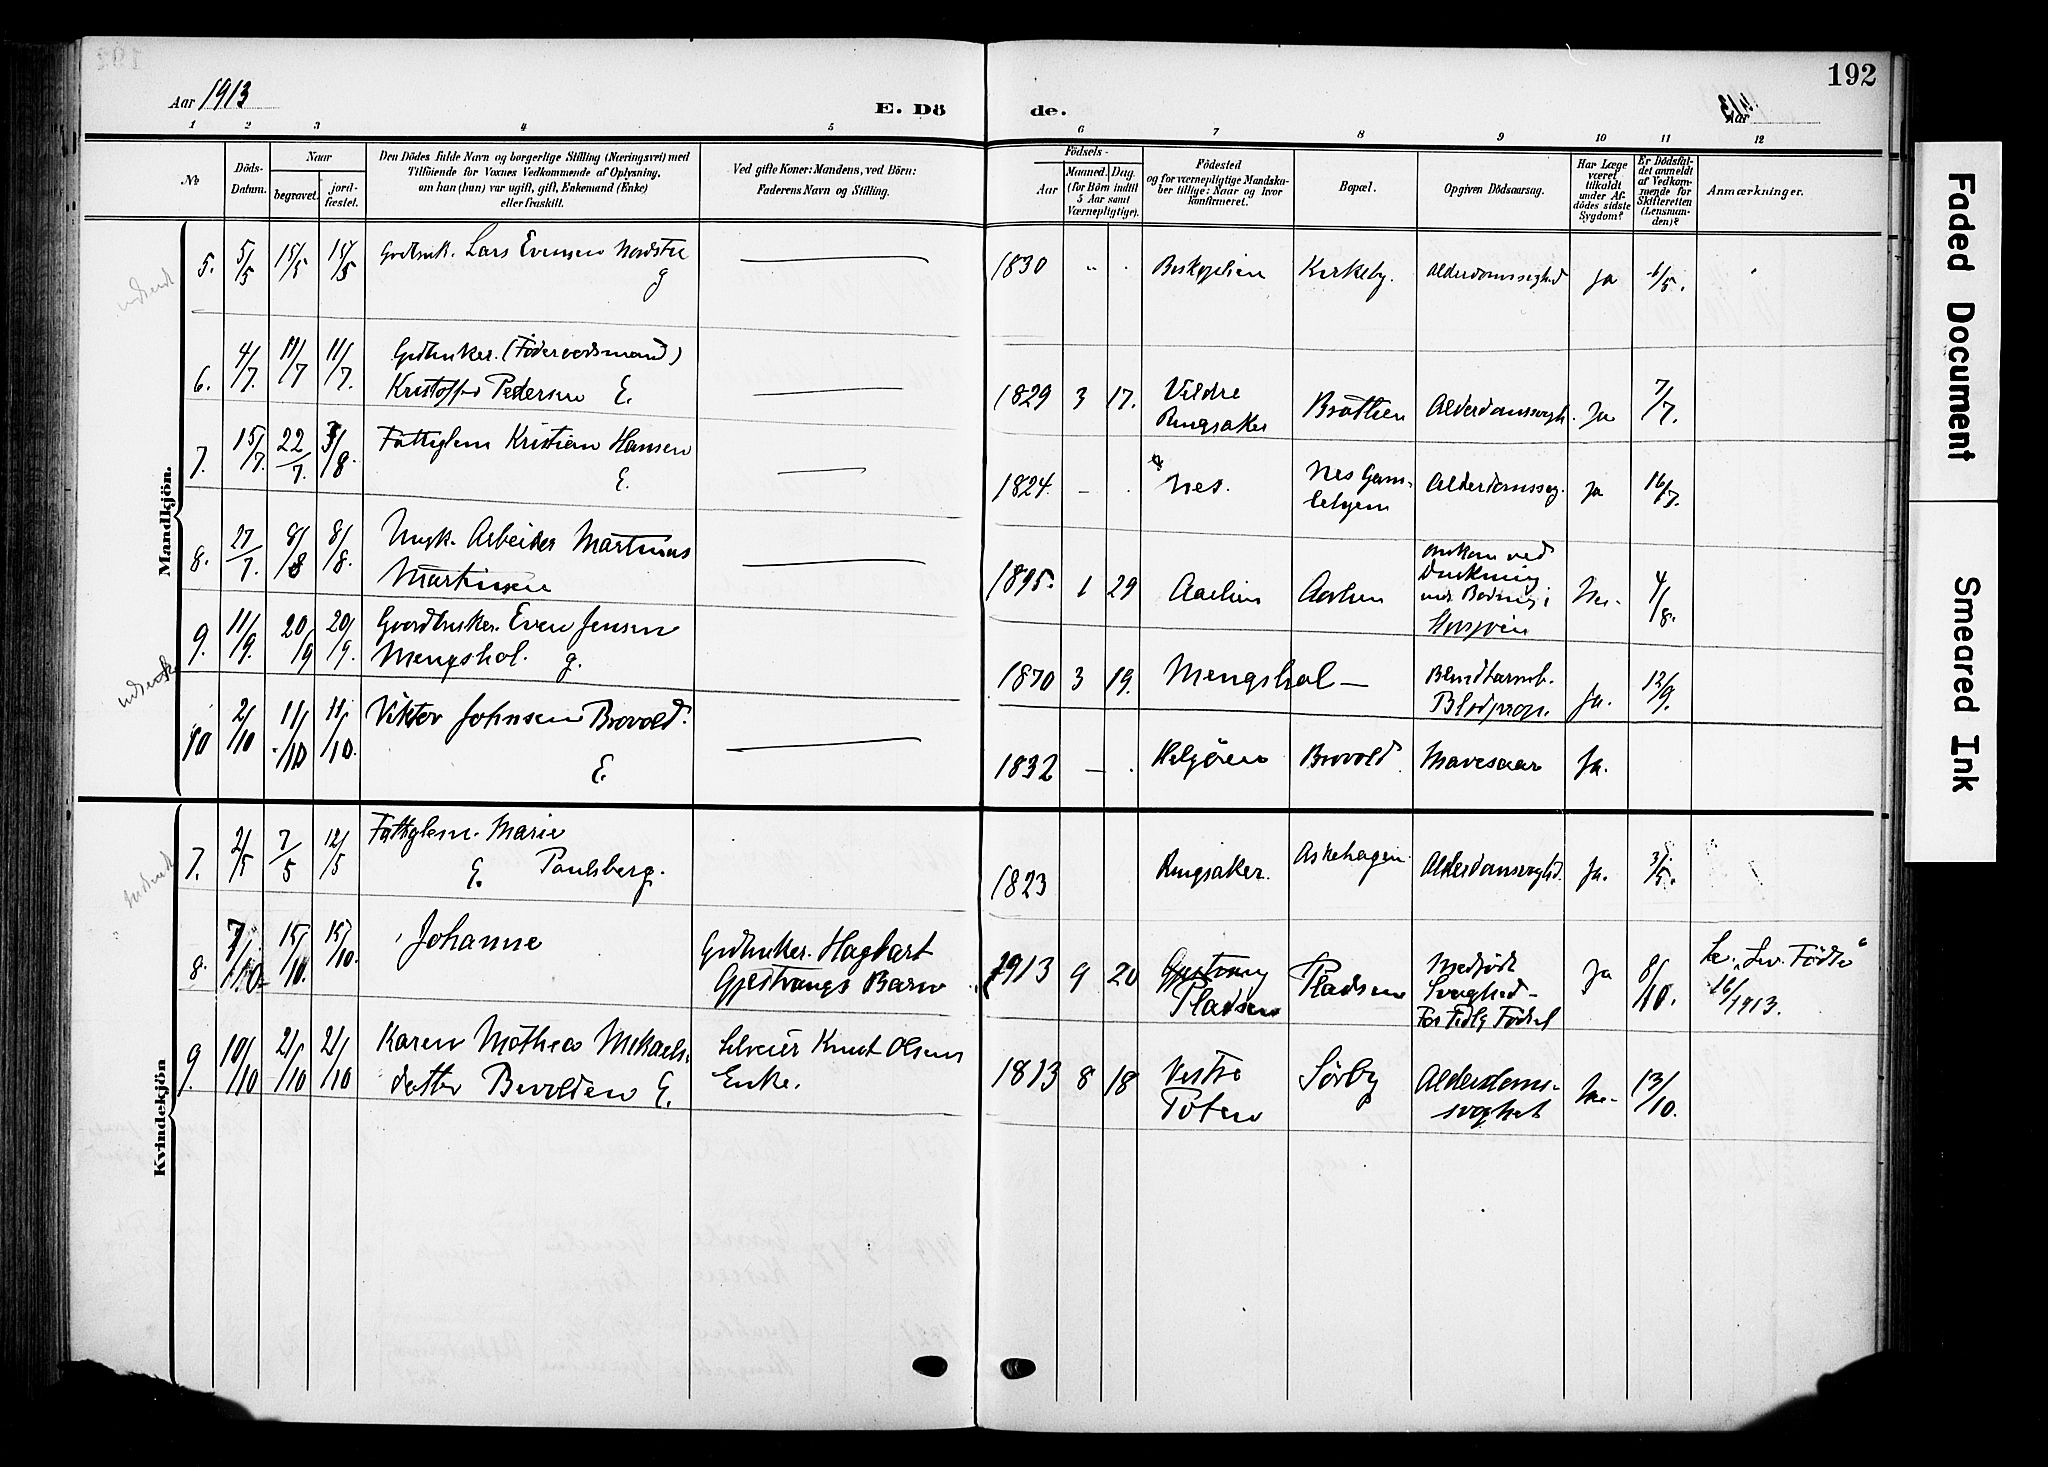 192
Aar 1913
E. Dö
de.
Aar
1 2 3 4 5
6 7 8 9 10 11 12
№
Döds-
Datum.
Naar
begravet.
jord-
fæstet.
Den Dödes fulde Navn og borgerlige Stilling (Næringsvei) med
Tilföiende for Voxnes Vedkommende af Oplysning,
om han (hun) var ugift, gift, Enkemand (Enke)
eller fraskilt.
Ved gifte Koner: Mandens, ved Börn:
Faderens Navn og Stilling.
Födsels-
Aar
Maaned. Dag.
(for Börn indtil
5 Aar samt
Værnepligtige).
Födested
og for værnepligtige Mandska-
ber tillige: Naar og hvor
konfirmeret.
Bopæl.
Opgiven Dödsaarsag.
Har Læge
været
tilkaldt
under Af-
dödes sidste
Sygdom?
Er Dödsfal-
det anmeldt
af Vedkom-
mende for
Skifteretten
(Lensman-
den)?
Anmærkninger.
Mandkjön.
5. 5/5 15/5 15/5 Lars Evensen Nordstu
g
1830 Kirkeby. Ja 6/5.
6. 4/7. 11/7 11/7. Gdbruker. (Föderaadsmand)
Kristoffer Pedersen E.
1829 3 17. Veldre
Ringsaker Bråthen Alderdomssvagh. Ja 7/7.
7. 15/7. 22/7. 3/8. Fattiglem Kristian Hansen
E.
1824. Nes. Nes Gam-
lehjem Alderdomssvag. Ja 16/7.
8. 27/7. 8/8 8/8. Ungk. Arbeider Martinus
Martinsen
1895. 1 29 omkom ved
Drukning
ved Badning i
Nei. 4/8.
9. 11/9. 20/9 20/9. Gaardbruker. Even Jensen
Mengshol. g.
1870 3 19. Mengshol — Blindtarmb.
Blodprop. Ja. 12/9.
10 2/10 11/10 11/10. Viktor Johnsen Brovold.
E.
1832 Helgöen Brovold Mavesaar Ja.
Kvindekjön
7. 2/5 7/5 12/5 Fattiglem. Marie
E. Paulsberg.
1823 Ringsaker. Askehagen Alderdomssvaghed. Ja. 3/5.
8. 7/10 15/10. 15/10. Johanne
Gdbruker. Hagbart
Gjestvangs Barn
1913 9 20 Gjestvang
Pladsen Pladsen Medfødt
Svaghed-
For tidlig Födsel Ja 8/10. Se. Lev. Födte
16/1913.
9. 10/10 21/10 21/10 Karen Mathea Mikaels-
datter Bevolden E.
Selveier Knut Olsens
Enke.
1813 8 18 Vestre
Toten Sörby Alderdoms-
svaghet Nei. 13/10.
Faded Document
Smeared Ink